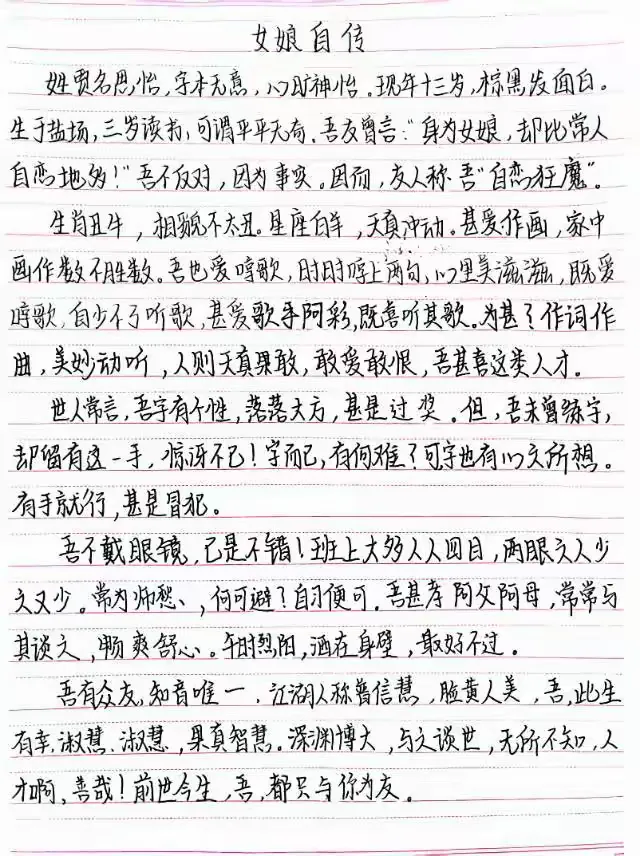 女娘自传
姓贾名思怡，字本无意，心旷神怡。现年十三岁，棕黑发面白。
生于盐场，三岁读书，可谓平平无奇。吾友曾言："身为女娘，却比常人
自恋地多！"吾不反对，因为事实。因而，友人称吾"自恋狂魔"。
生肖丑牛，相貌不太丑。星座白羊，天真冲动。甚爱作画，家中
画作数不胜数。吾也爱哼歌，时时哼上两句，心里美滋滋，既爱
哼歌，自少不了听歌，甚爱歌手阿彩，既喜听其歌。为甚？作词作
曲，美妙动听，人则天真果敢，敢爱敢恨，吾甚喜这类人才。
世人常言，吾字有个性，落落大方，甚是过奖。但，吾未曾练字，
却留有这一手，惊讶不已！字而已，有何难？可字也有心之所想。
有手就行，甚是冒犯。
吾不戴眼镜，已是不错！班上大多人人四目，两眼之人少
之又少。常为师愁，何可避？自习便可。吾甚孝阿父阿母，常常与
其谈之，畅爽舒心。午时烈阳，洒在身壁，最好不过。
吾有众友，知音唯一，江湖人称曾信慧，脸黄人美，吾，此生
有幸，淑慧，淑慧，果真智慧。深渊博大，与之谈世，无所不知，人
才啊，善哉！前世今生，吾，都只与你为友。